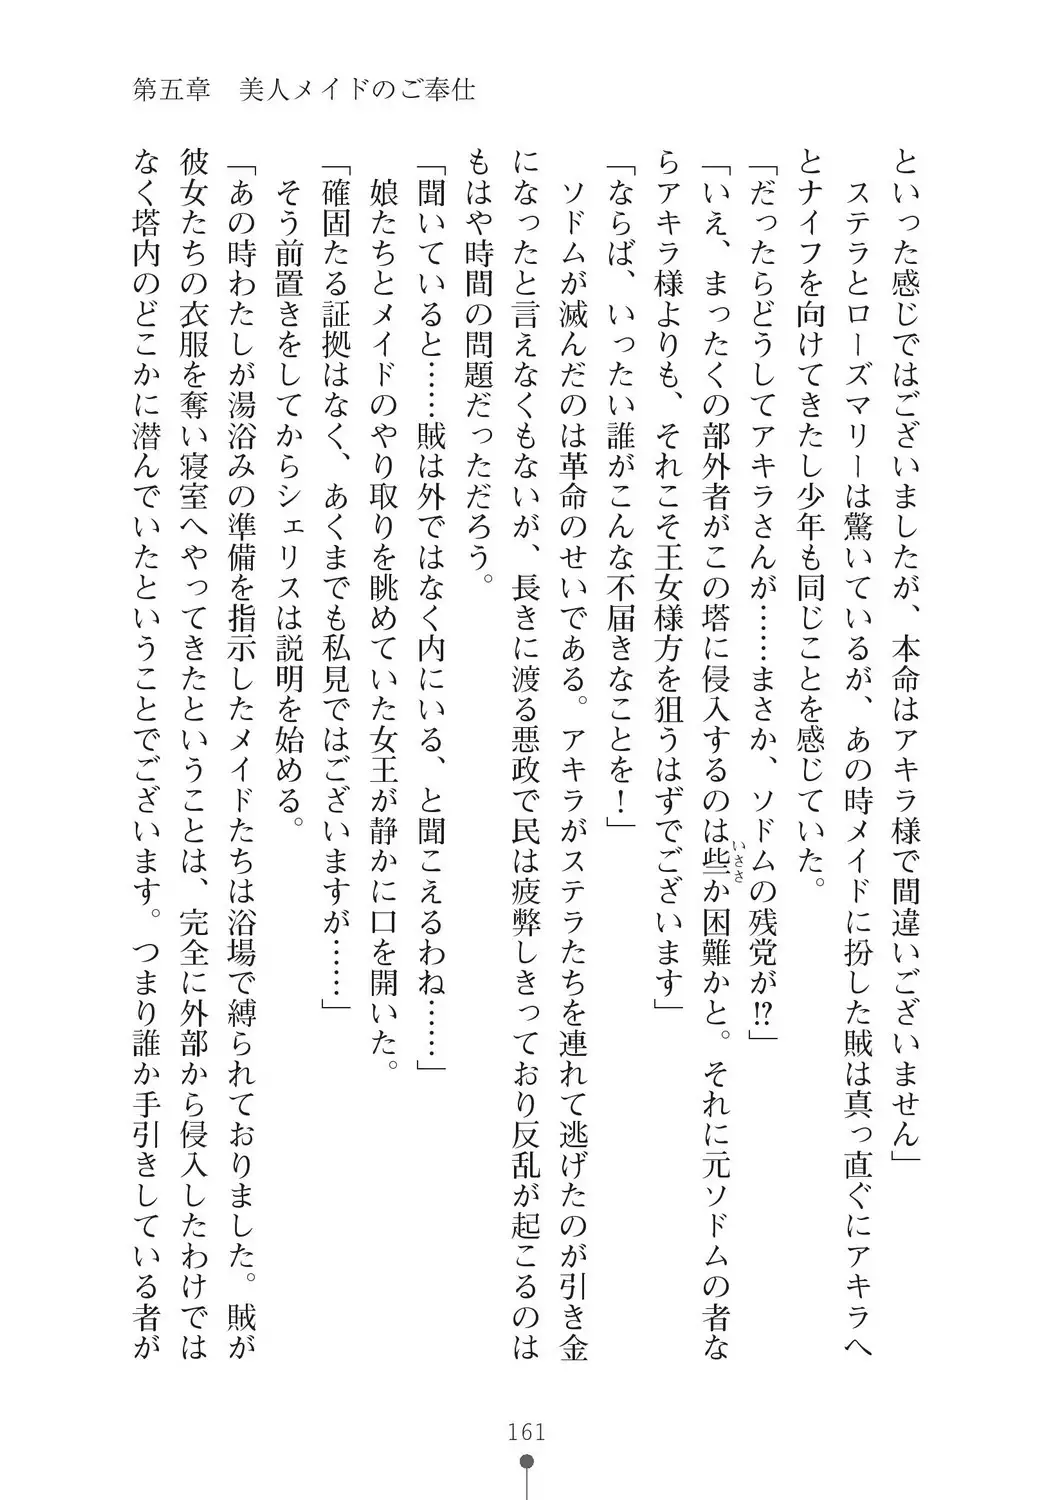 第五章　美人メイドのご奉仕
といった感じではございましたが、本命はアキラ様で間違いございません」
　ステラとローズマリーは驚いているが、あの時メイドに扮した賊は真っ直ぐにアキラへ
とナイフを向けてきたし少年も同じことを感じていた。
「だったらどうしてアキラさんが……まさか、ソドムの残党が!?」
「いえ、まったくの部外者がこの塔に侵入するのは些か困難かと。それに元ソドムの者な
いささ
らアキラ様よりも、それこそ王女様方を狙うはずでございます」
「ならば、いったい誰がこんな不届きなことを！」
　ソドムが滅んだのは革命のせいである。アキラがステラたちを連れて逃げたのが引き金
になったと言えなくもないが、長きに渡る悪政で民は疲弊しきっており反乱が起こるのは
もはや時間の問題だっただろう。
「聞いていると……賊は外ではなく内にいる、と聞こえるわね……」
　娘たちとメイドのやり取りを眺めていた女王が静かに口を開いた。
「確固たる証拠はなく、あくまでも私見ではございますが……」
　そう前置きをしてからシェリスは説明を始める。
「あの時わたしが湯浴みの準備を指示したメイドたちは浴場で縛られておりました。賊が
彼女たちの衣服を奪い寝室へやってきたということは、完全に外部から侵入したわけでは
なく塔内のどこかに潜んでいたということでございます。つまり誰か手引きしている者が
161